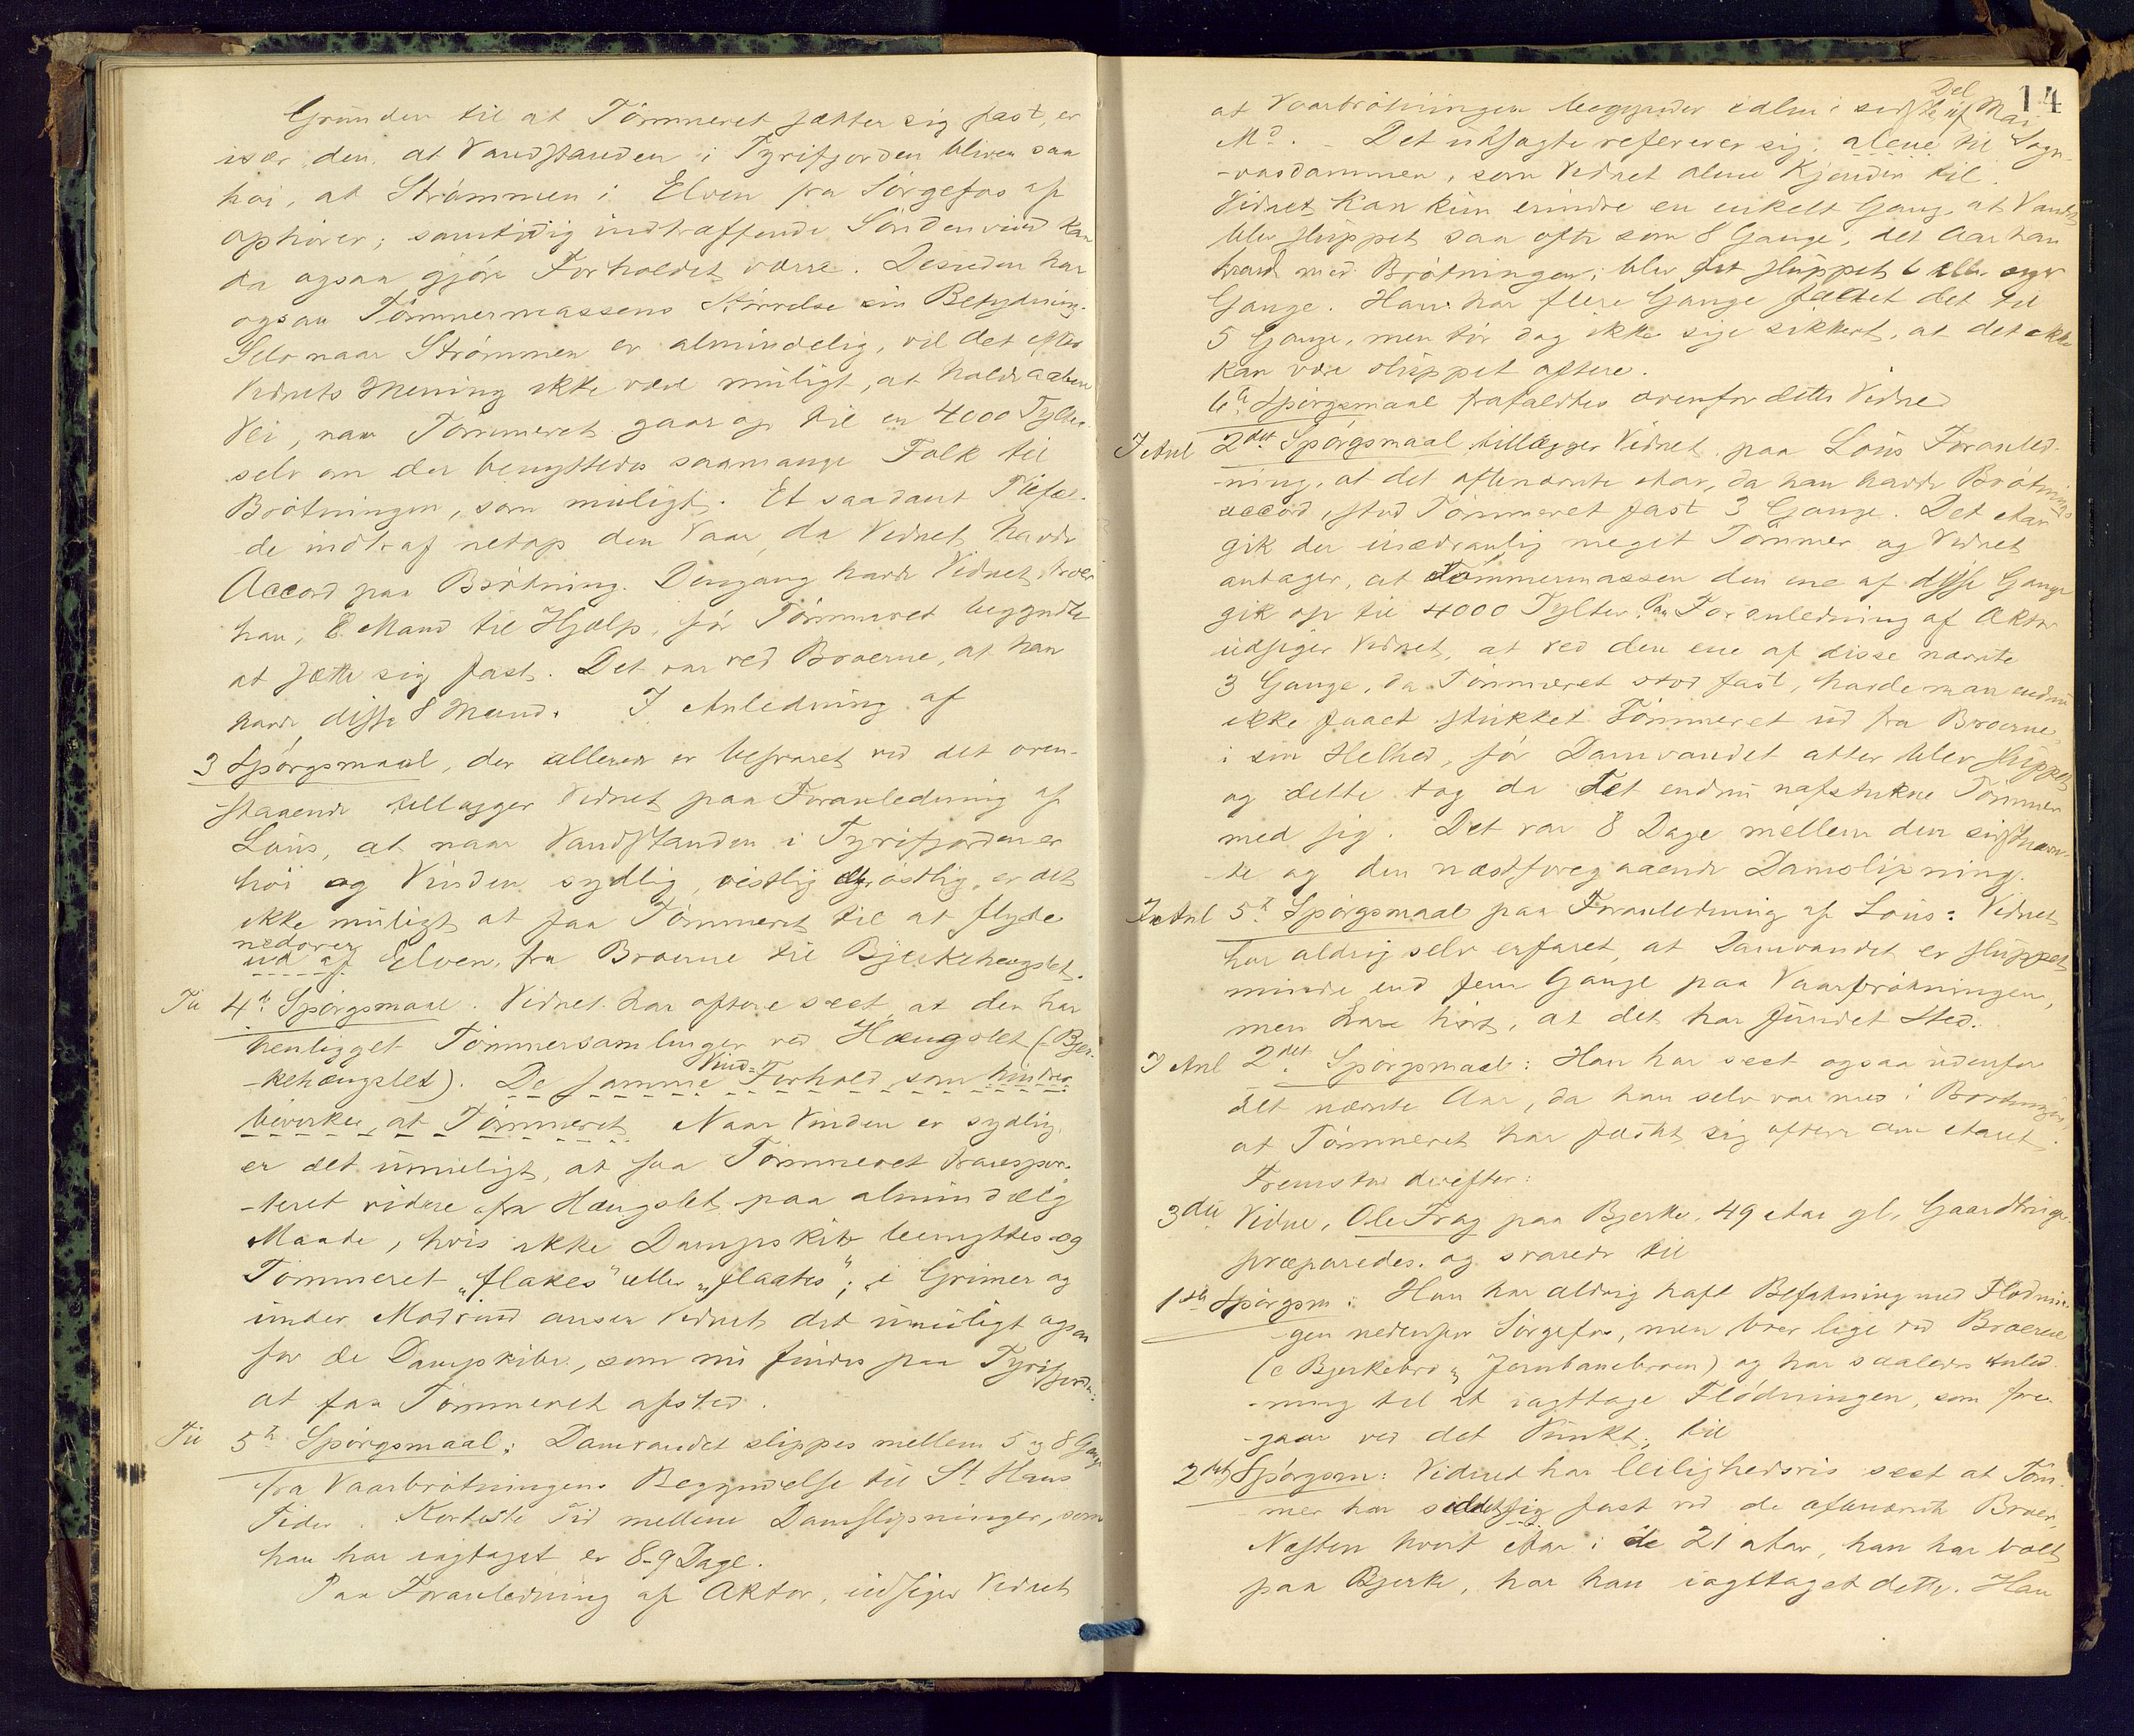 Grunden til at Tömmeret sætter sig fast, er
især den, at Vandstanden i Tyrifjorden bliver saa
höi, at Strömmen i Elven fra Sörgefos af
ophörer; samtidig indtræffende Söndenvind kan
da ogsaa gjöre Forholdet værre. Desuden har
ogsaa Tömmermassens Störrelse sin Betydning.
Selv naar Strömmen er almindelig, vil det efter
Vidnets Mening ikke være muligt, at holde aaben
Vei, naar Tömmeret gaar op til en 4000 Tylter
selv om der benyttedes saamange Folk til
Brötningen, som muligt. Et saadant Tilfæl-
de indtraf netop den Vaar, da Vidnet havde
Accord paa Brötning. Dengang havde Vidnet, tror
han, 8 Mand til Hjælp, för Tömmeret begyndte
at sætte sig fast. Det var ved Broerne, at han
havde disse 8 Mand. I Anledning af
3 Spörgsmaal, der allerede er besvaret ved det oven-
staaende tillægger Vidnet paa Foranledning af
Lous, at naar Vandstanden i Tyrifjorden er
höi og Vinden sydlig, vestlig eller östlig, er det
ikke muligt at faa Tömmeret til at flyde
nedover
ud af Elven, fra Broerne til Bjerkehengslet.
Til 4de Spörgsmaal. Vidnet har oftere seet, at der har
henligget Tömmersamlinger ved Hængslet (Bjer-
Vind-
-kehængslet). De samme Forhold, som hindrer
bevirker, at Tömmeret. Naar Vinden er sydlig
er det umuligt, at faa Tömmeret transpor-
-teret videre fra Hængslet paa almindelig
Maade, hvis ikke Dampskib benyttes og
Tömmeret "flakes" eller "flaates"; i Grimer og
under Modvind anser Vidnet det umuligt ogsaa
for de Dampskibe, som nu findes paa Tyrifjorden
at faa Tömmeret afsted.
Til 5te Spörgsmaal: Damvandet slippes mellem 5 og 8 Gange
fra Vaarbrötningens Begyndelse til St Hans
Tider. Korteste Tid mellem Damslipninger, som
han har iagtaget er 8-9 Dage.
Paa Foranledning af Aktor, udsiger Vidnet
14
Del
at Vaarbrötningen begynder i sidste af Mai
Md. - Det udsagte refererer sig alene til Sogn-
-vasdammen, som Vidnet alene Kjender til.
Vidnet kan kun erindre en enkelt Gang, at Vandet
blev sluppet saa ofte som 8 Gange, det Aar han
havde med Brötningen, blev det sluppet 6 eller syv
Gange. Han har flere Gange det til
5 Gange, men tör dog ikke sige sikkert, at det ikke
kan være sluppet oftere.
6te Spörgsmaal frafaldtes ovenfor dette Vidne
I Anl 2det Spörgsmaal tillægger Vidnet paa Lous Foranled-
-ning, at det oftenævnte Aar, da han havde Brötnings
accord, stod Tömmeret fast 3 Gange. Det Aar
gik der usædvanlig meget Tömmer og Vidnet
antager, at Tömmermassen den ene af disse Gange
gik op til 4000 Tylter. Paa Foranledning af Aktor
udsiger Vidnet, at ved den ene af disse nævnte
3 Gange, da Tömmeret stod fast, havde man endnu
ikke faaet stukket Tömmeret ud fra Broerne
i sin Helhed, för Damvandet atter blev sluppet
og dette tog da det endnu uafstukne Tömmer
med sig. Det var 8 Dage mellem den sidstnævn-
-te og den næstforegaaende Damslipning.
I Anl 5te Spörgsmaal paa Foranledning af Lous: Vidnet
har aldrig selv erfaret, at Damvandet er sluppet
mindre end fem Gange paa Vaarbrötningen,
men bare hört, at det har fundet Sted.
I Anl 2det Spörgsmaal: Han har seet ogsaa udenfor
det nævnte Aar, da han selv var med i Brötningen,
at Tömmeret har sig oftere om Aaret.
Fremstod derefter:
3die Vidne, Ole Frag paa Bjerke, 49 Aar gl, Gaardbruger
præparedes og svarede til
1ste Spörgsm: Han har aldrig haft Befatning med Flödnin-
gen nedenfor Sörgefos, men bor lige ved Broerne
(Bjerkebro og Jernbanebroen) og har saaledes Anled-
-ning til at iagttage Flödningen, som fore-
-gaar ved det Punkt; til
2det Spörgsm: Vidnet har leilighedsvis seet at Töm-
mer har siddet sig fast ved de ofternævnte Broer,
Næsten hvert Aar i de 21 Aar, han har boet
paa Bjerke, har han iagttaget dette. Han